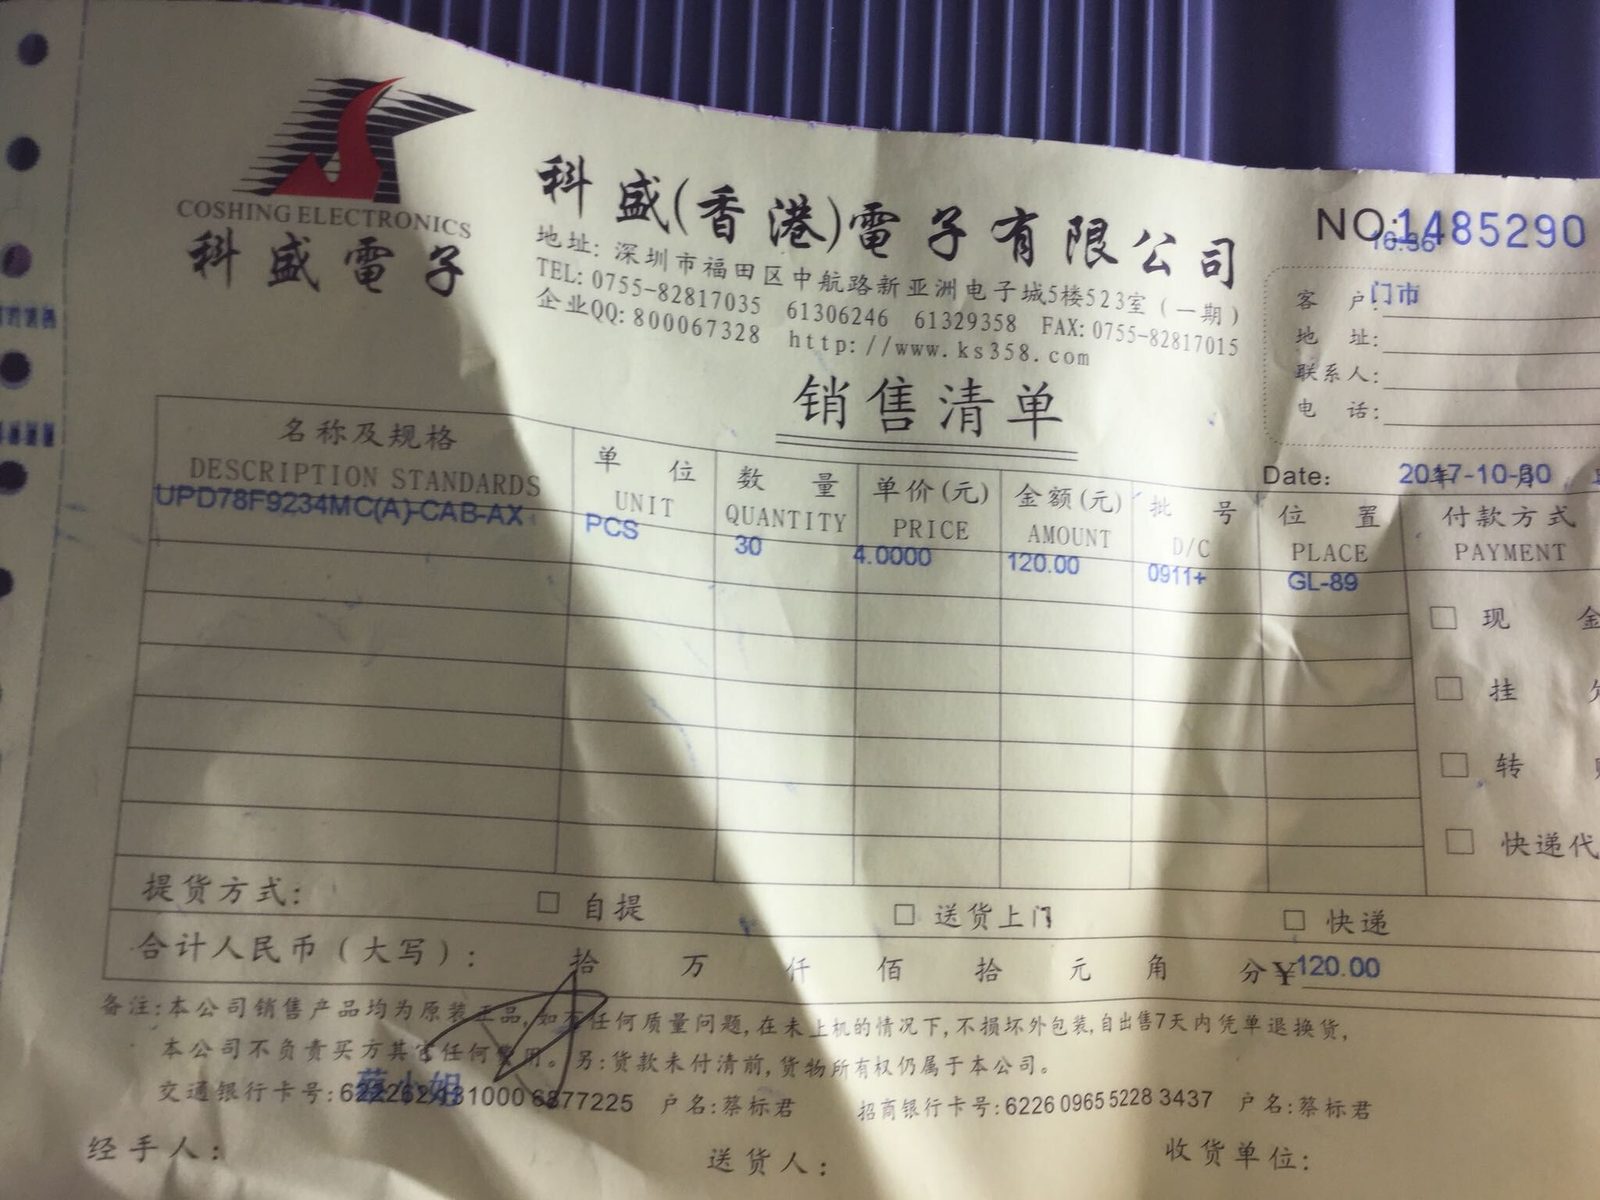 COSHING ELECTRONICS
科盛電子
科盛(香港)電子有限公司
地址: 深圳市福田区中航路新亚洲电子城5楼523室(一期)
TEL: 0755-82817035 61306246 61329358 FAX: 0755-82817015
企业QQ: 800067328 http://www.ks358.com
销售清单
NO:1485290
16:36
客户: 门市
地址:
联系人:
电话:
Date: 2017-10-30
名称及规格 单位 数量 单价(元) 金额(元) 批号 位置 付款方式
DESCRIPTION STANDARDS UNIT QUANTITY PRICE AMOUNT D/C PLACE PAYMENT
UPD78F9234MC(A)-CAB-AX PCS 30 4.0000 120.00 0911+ GL-89
□ 现金
□ 挂
□ 转
□ 快递代
提货方式: □ 自提 □ 送货上门 □ 快递
合计人民币(大写): 拾 万 仟 佰 拾 元 角 分 ¥120.00
备注:本公司销售产品均为原装正品,如有任何质量问题,在未上机的情况下,不损坏外包装,自出售7天内凭单退换货,
本公司不负责买方其它任何费用。另:货款未付清前,货物所有权仍属于本公司。
蔡小姐
交通银行卡号: 户名:蔡标君 招商银行卡号:6226 0965 5228 3437 户名:蔡标君
经手人: 送货人: 收货单位: